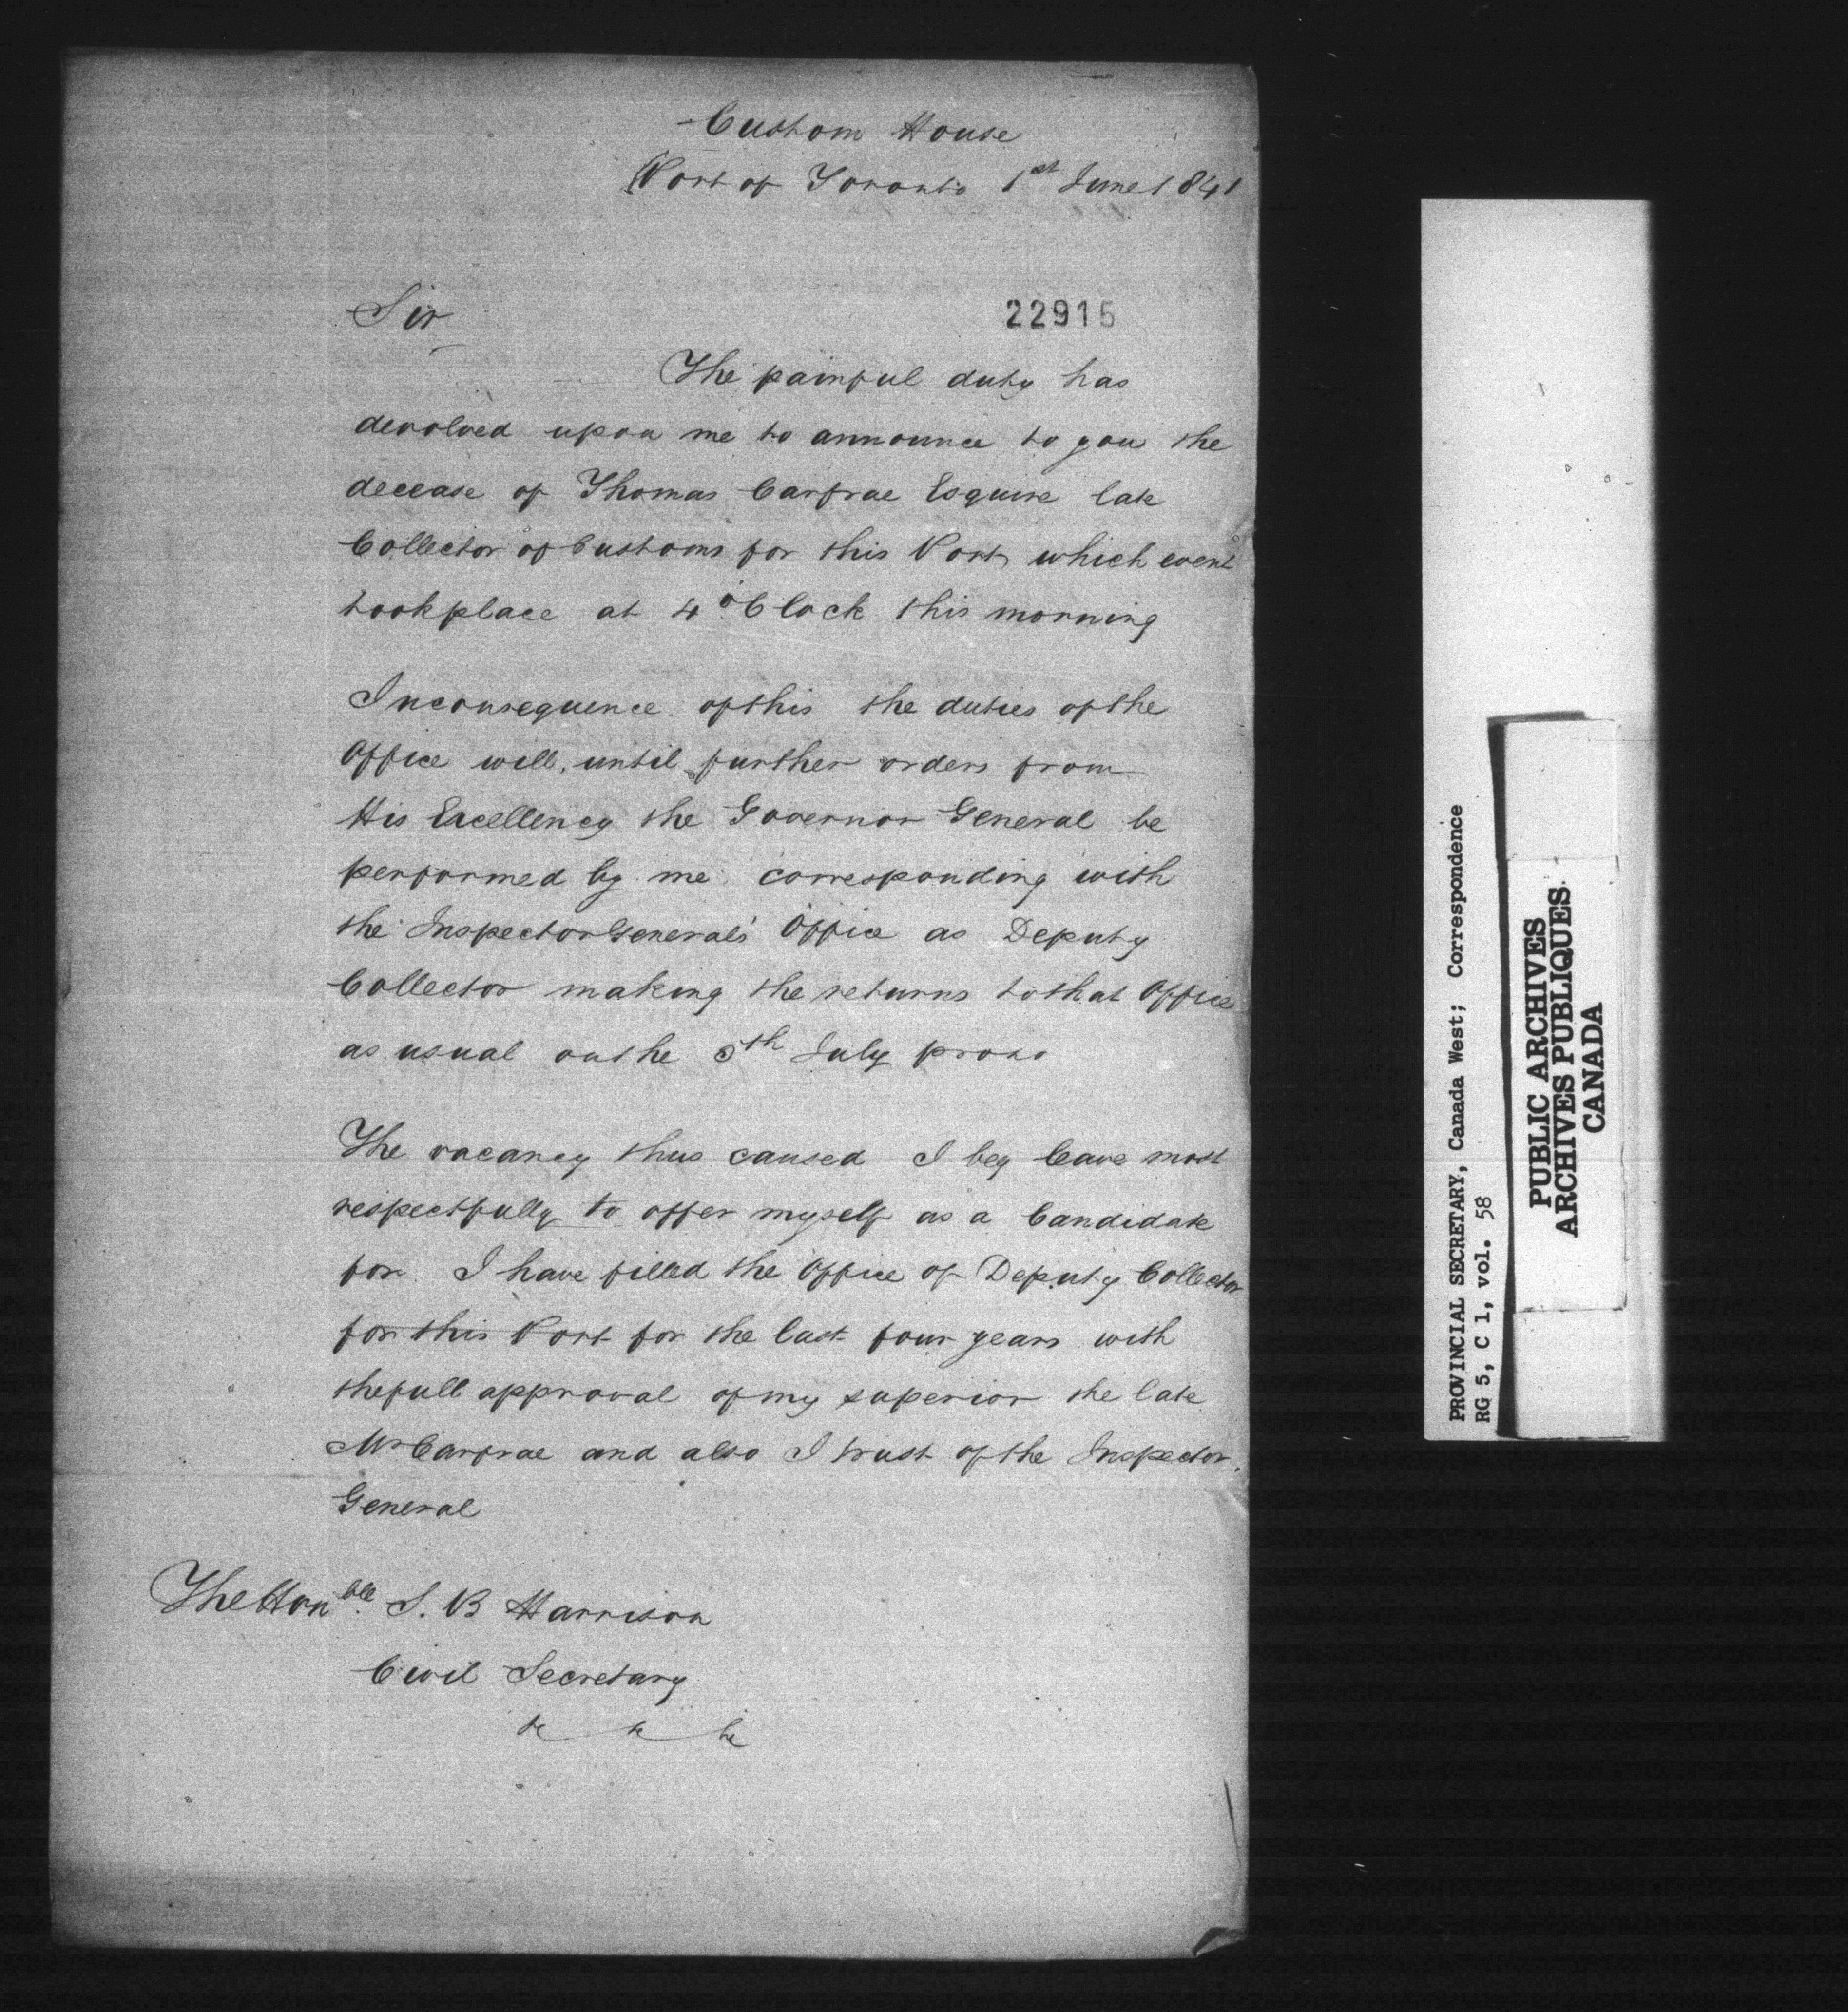 Custom House
Port of Toronto 1st June 1841
Sir
22915
The painful duty has
devolved upon me to announce to you the
decease of Thomas Carfrae Esquire late
Collector of Customs for this Port which event
took place at 4 o'Clock this morning
In consequence of this the duties of the
Office will, until further orders from
His Excellency the Governor General be
performed by me corresponding with
the Inspector Generals' Office as Deputy
Collector making the returns to that Office
as usual on the 5th July proxo
The vacancy thus caused I beg leave most
respectfully to offer myself as a Candidate
for. I have filled the Office of Deputy Collector
for this Port for the last four years with
the full approval of my superior the late
Mr Carfrae and also I trust of the Inspector
General
The Honble. S. B Harrison
Civil Secretary
&c &c &c
PROVINCIAL SECRETARY, Canada West; Correspondence
RG 5, C 1, vol. 58
PUBLIC ARCHIVES
ARCHIVES PUBLIQUES
CANADA